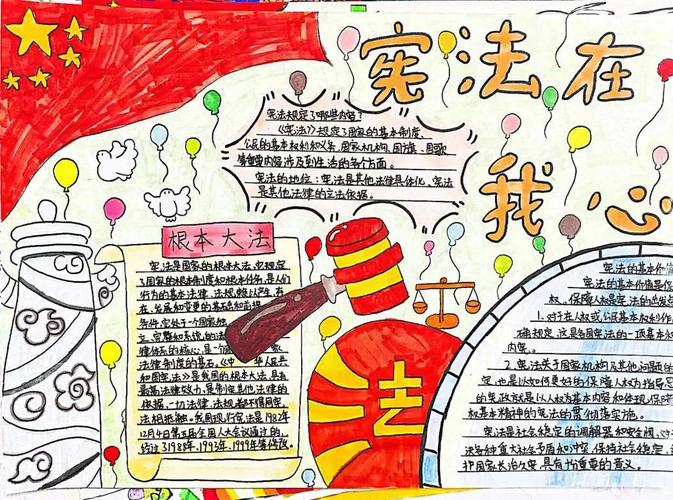 宪法在
我心
宪法规定了哪些内容？
《宪法》规定了国家的基本制度、
公民的基本权利和义务、国家机构、国旗、国歌
等重要内容涉及到生活的各个方面。
宪法的地位：宪法是其他法律具体化、宪法
是其他法律的立法依据。
根本大法
宪法是国家的根本大法，它规定
了国家的根本制度和根本任务，是人们
行为的基本法律、法规，赖以产生、存
在、发展和变更的基础和前提
条件，它处于一个国家独
立、完整和系统的法
律体系的核心，是一个
法律制度的基石。《中 华人民共
和国宪法》是我国的根本大法，具有
最高法律效力，是制定其他法律的
依据，一切法律、法规都不得同宪
法相抵触。我国现行宪法是1982年
12月4日第五届全国人大会议通过的，
经过1988年、1993年、1999年等修改。
法
宪法的基本价值
宪法的基本价值是保
权、保障人权是宪法的出发点
1.对于在人权或公民基本权利作
确规定，这是各国宪法的一项基本
内容。
2.宪法关于国家机构及其他问题的
定，也是以如何更好的保障人权为指导思
的宪政就是以人权为基本内容和体现保障
权基本精神的宪法的贯彻落实施。
宪法是社会稳定的调解器和安全阀，对
决各种重大社会矛盾和冲突，保持社会稳定，
护国家长治久安具有十分重要的意义。